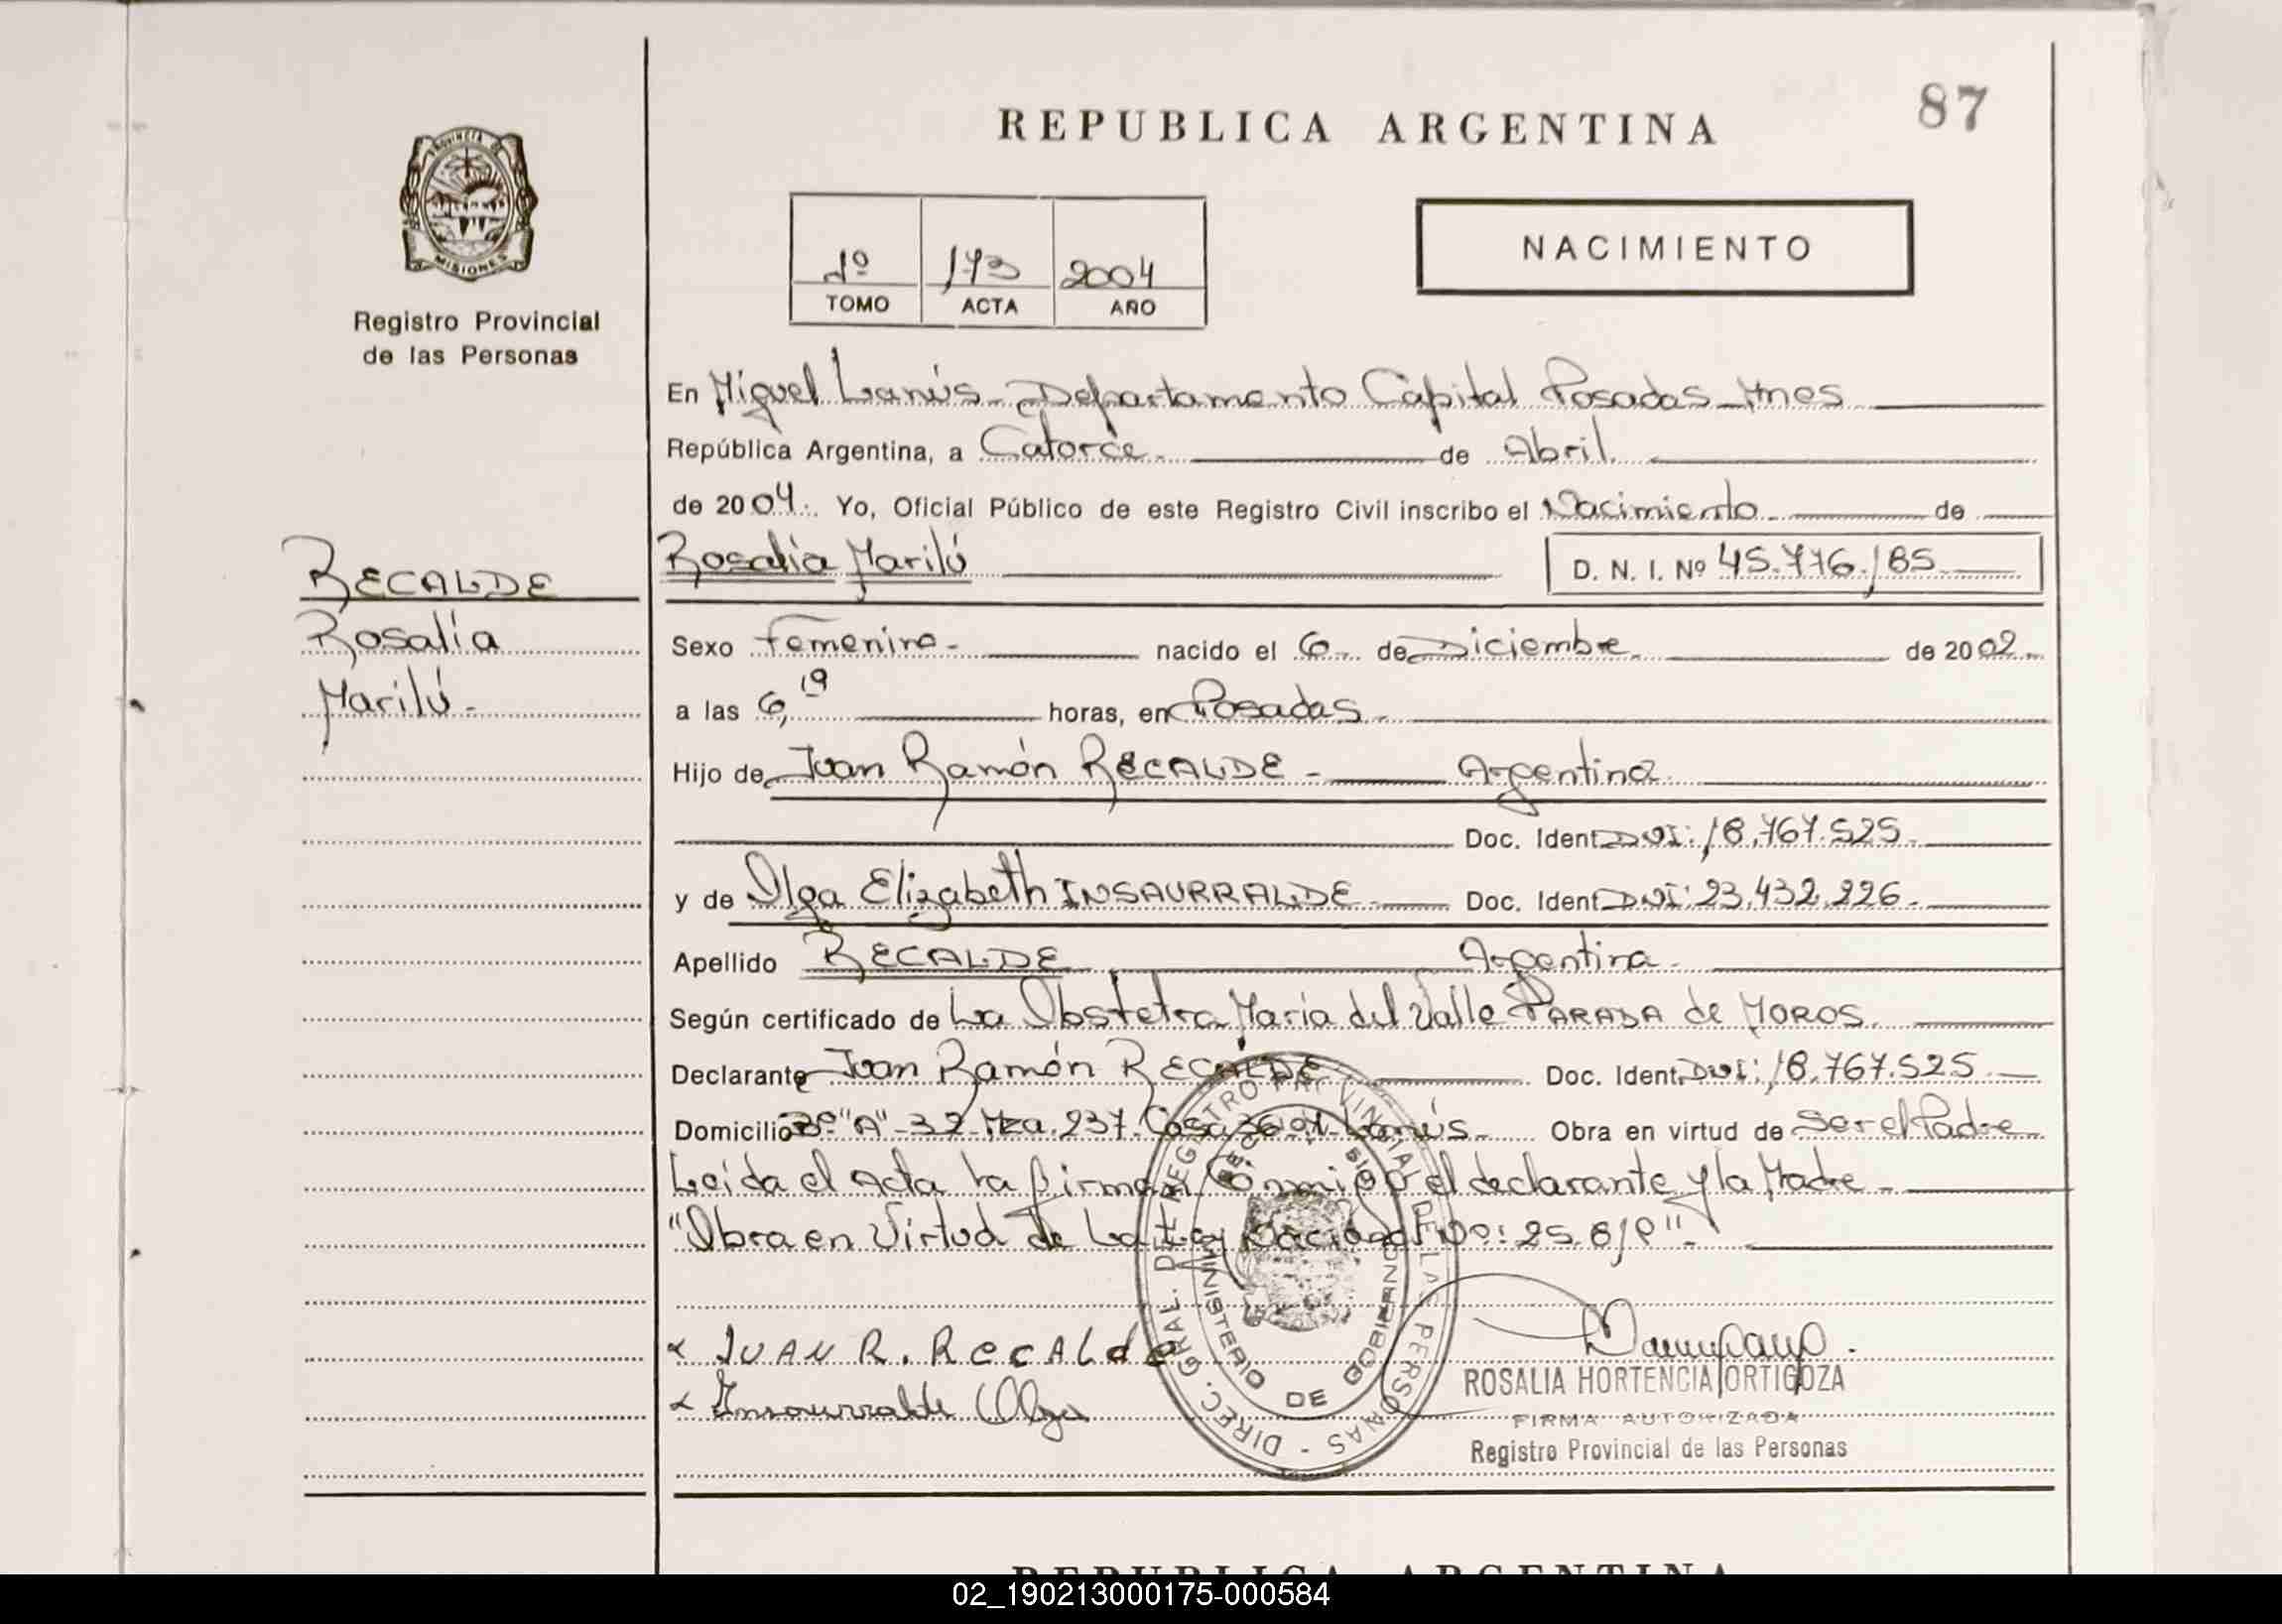 87
REPUBLICA ARGENTINA
PROVINCIA DE
MISIONES
Registro Provincial
de las Personas
1º 173 2004
TOMO ACTA AÑO
NACIMIENTO
En Miguel Lanús - Departamento Capital Posadas - Mnes
República Argentina, a Catorce de Abril
de 2004. Yo, Oficial Público de este Registro Civil inscribo el Nacimiento de
Rosalia Marilú D. N. I. Nº 45.776.185
RECALDE
Rosalía
Marilú.-
Sexo Femenino - nacido el 6 de Diciembre de 2002
a las 6,19 horas, en Posadas
Hijo de Juan Ramón RECALDE - Argentina
Doc. Ident. DNI: 18.767.525
y de Olga Elizabeth INSAURRALDE Doc. Ident. DNI: 23.432.226
Apellido RECALDE Argentina
Según certificado de La Obstetra María del Valle PARADA de MOROS
Declarante Juan Ramón RECALDE Doc. Ident. DNI: 18.767.525
Domicilio "A" - 32 Mza. 237 Casa Lanús - Obra en virtud de Ser el Padre
Leída el Acta la firman Conmigo el declarante y la Madre -
"Obra en Virtud de La Ley Nacional Nº: 25.819" -
JUAN R. RecALde
Insaurralde Olga
DIREC. GRAL. DEL REGISTRO PROVINCIAL DE LAS PERSONAS
MINISTERIO DE GOBIERNO
ROSALIA HORTENCIA ORTIGOZA
FIRMA AUTORIZADA
Registro Provincial de las Personas
REPUBLICA ARGENTINA
02_190213000175-000584